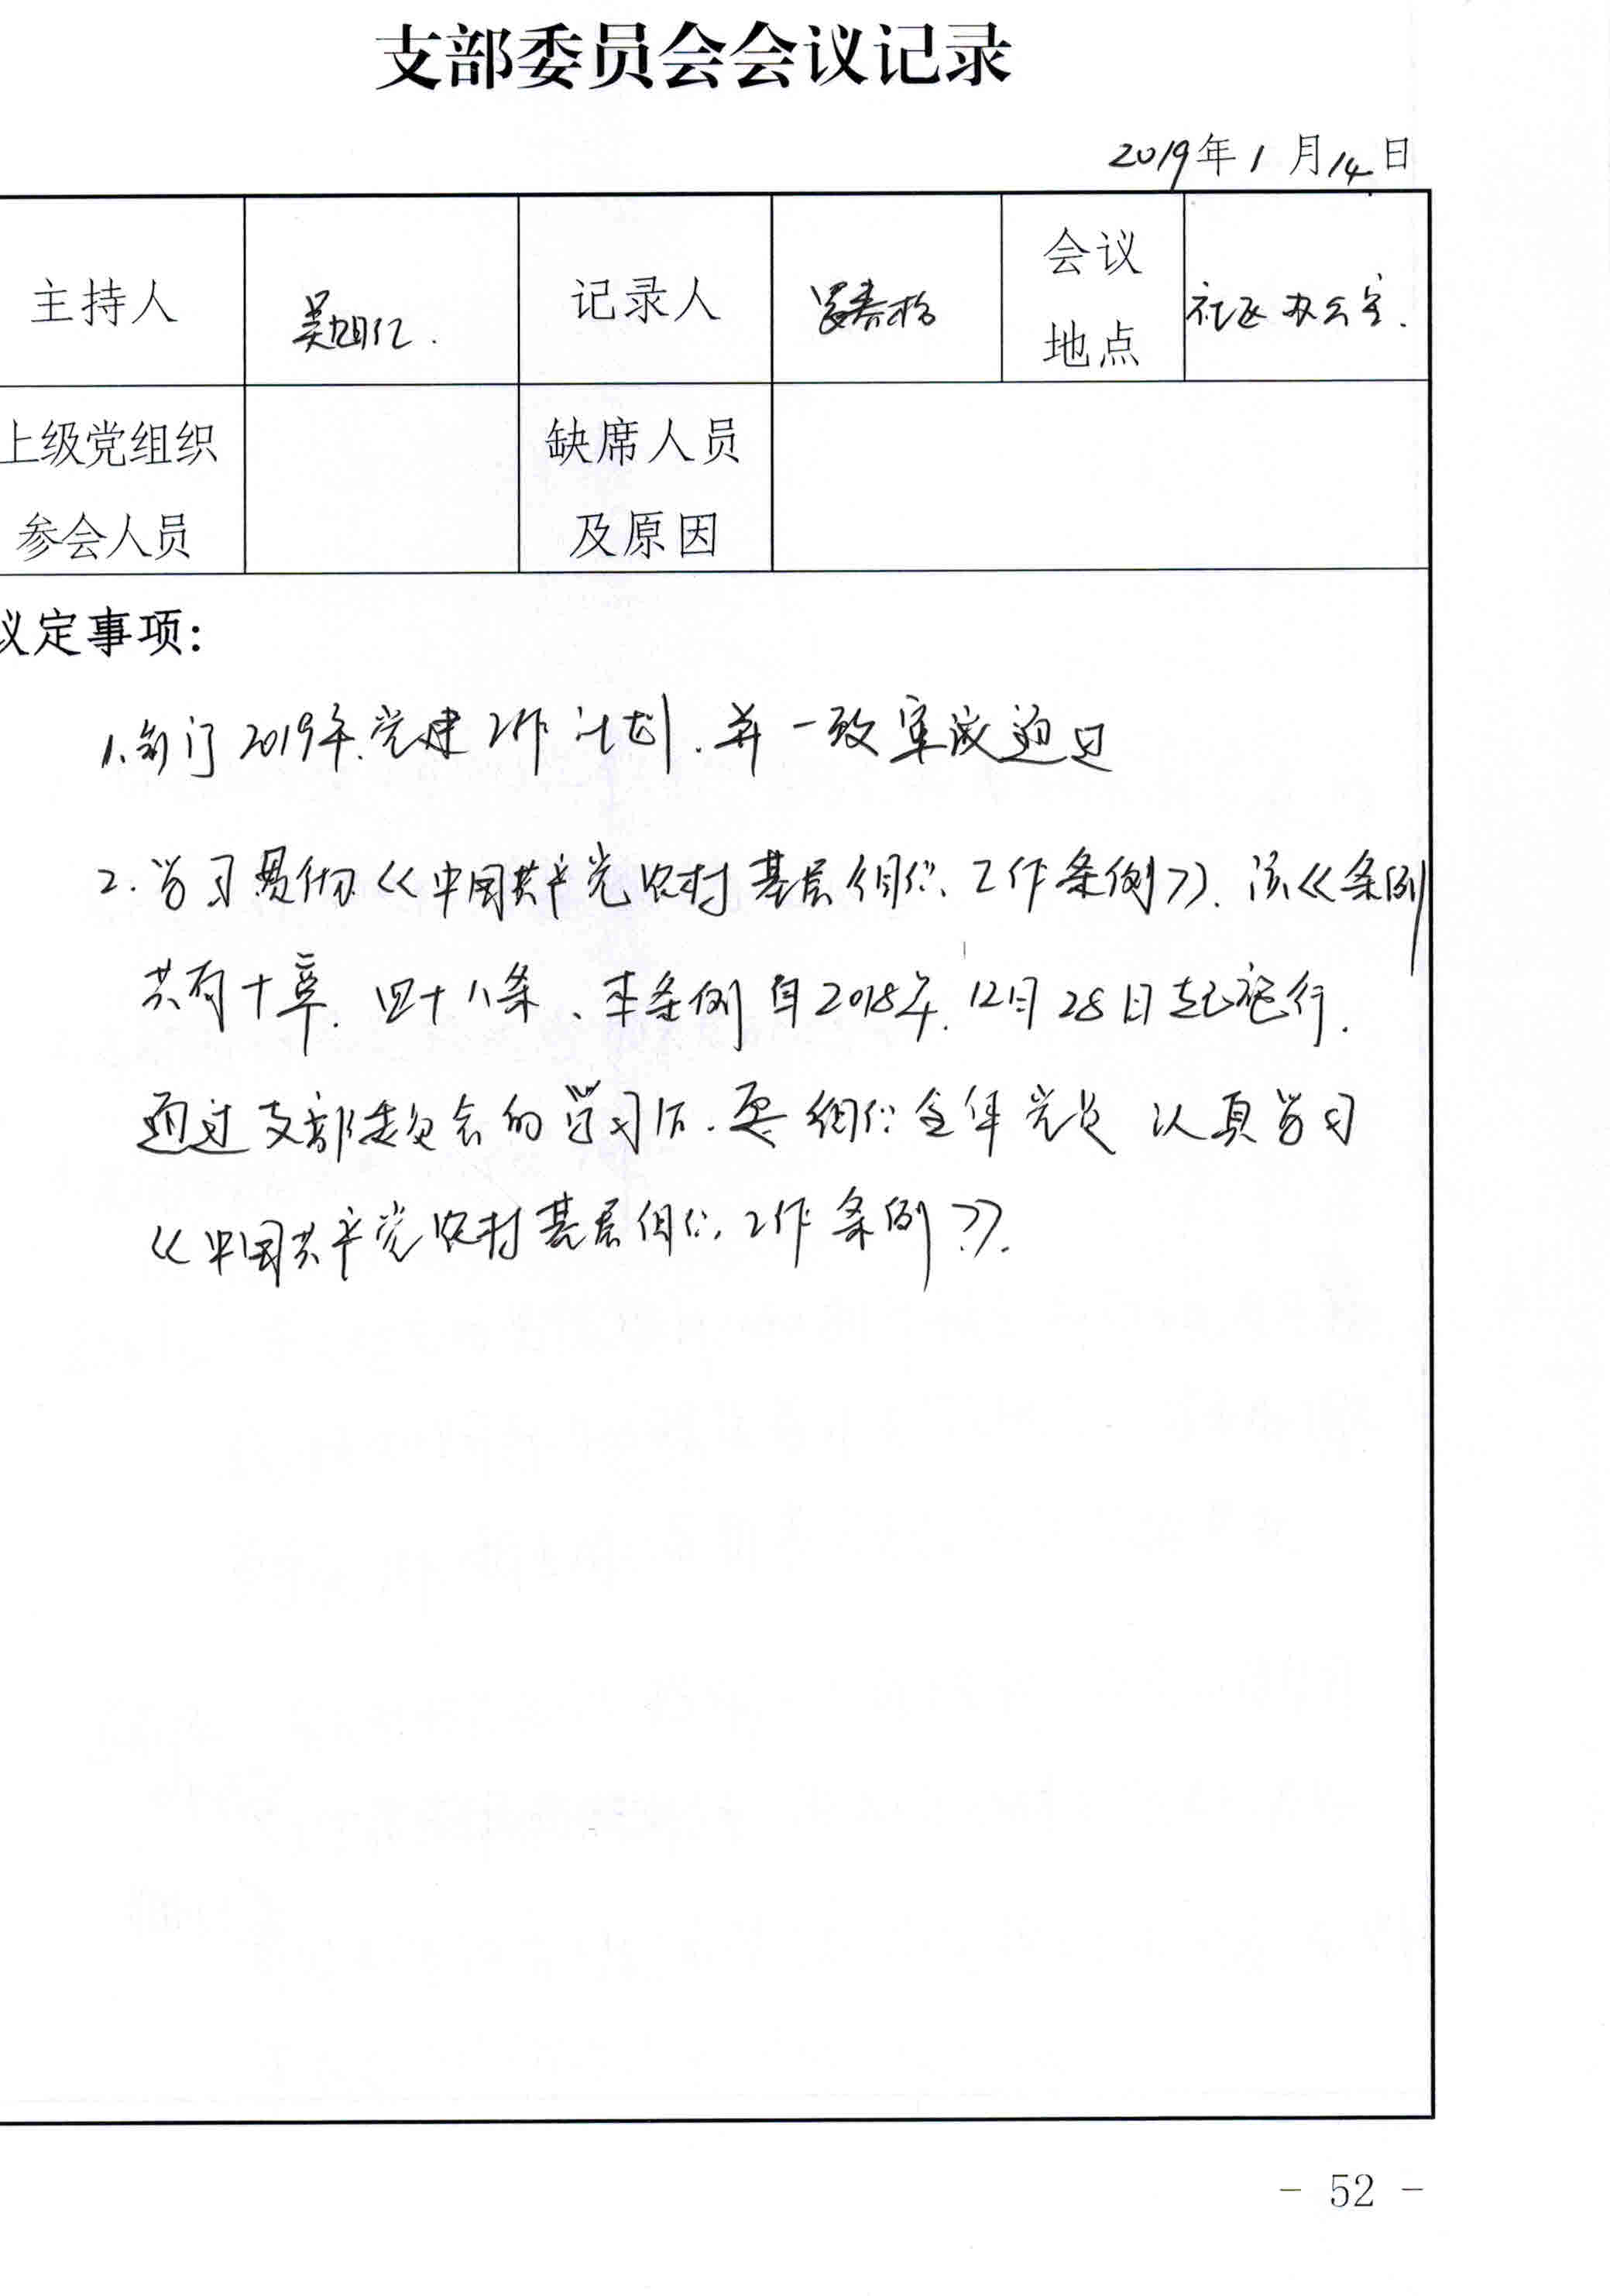 支部委员会会议记录
2019年1月14日
主持人 吴旭仁. 记录人 会议 社区办公室.
地点
上级党组织 缺席人员
参会人员 及原因
议定事项:
1.制订2019年党建工作计划.并一致审议通过
2.学习贯彻《中国共产党农村基层组织工作条例》.该《条例
共有十章.四十八条、本条例自2018年.12月28日起施行.
通过支部委员会的学习后.要组织全体党员认真学习
《中国共产党农村基层组织工作条例》.
- 52 -